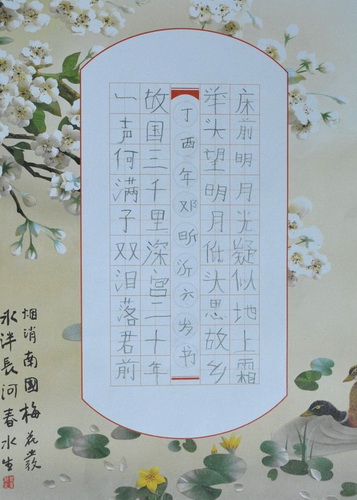 床前明月光疑似地上霜
举头望明月低头思故乡
丁酉年邓昕六岁书
故国三千里深宫二十年
一声何满子双泪落君前
烟消南國梅花發
冰泮長河春水生